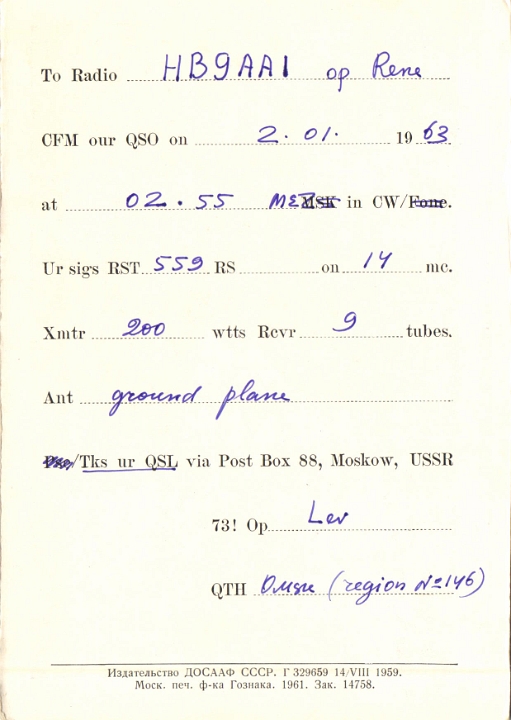 To Radio HB9AAI op Rene
CFM our QSO on 2.01. 1963
at 02.55 MSK in CW/Fone.
Ur sigs RST 559 RS on 14 mc.
Xmtr 200 wtts Rcvr 9 tubes.
Ant ground plane
/Tks ur QSL via Post Box 88, Moskow, USSR
73! Op Lev
QTH (region №146)
Издательство ДОСААФ СССР. Г 329659 14/VIII 1959.
Моск. печ. ф-ка Гознака. 1961. Зак. 14758.